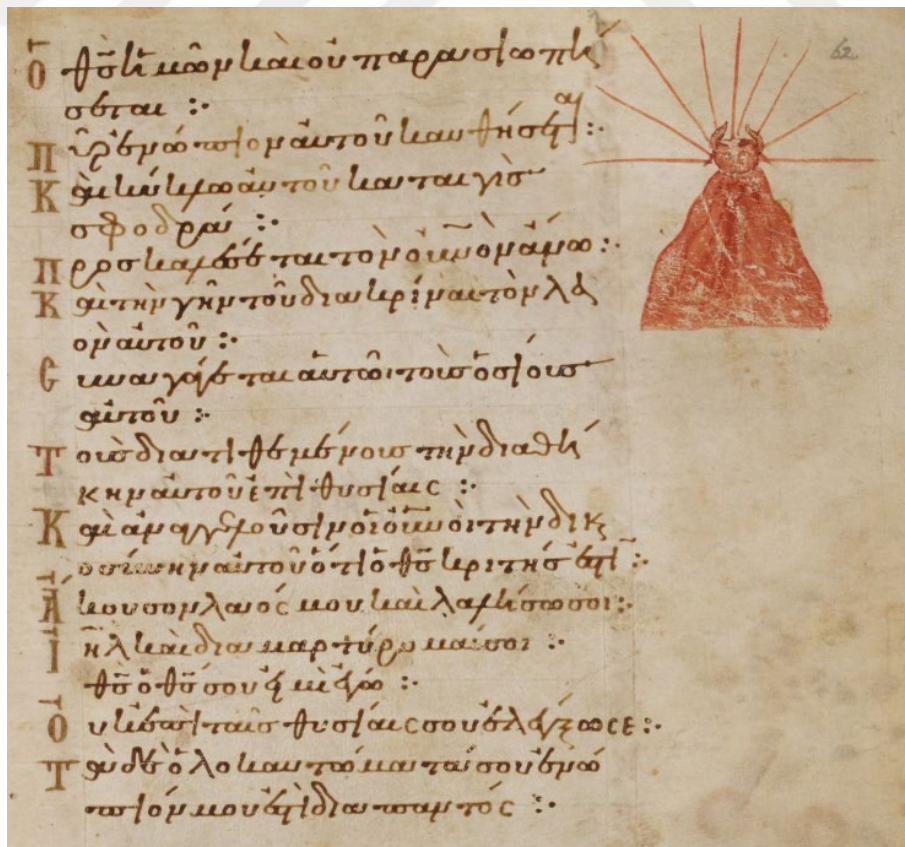 62
Ὁ θ̅ς̅ ἡμῶν καὶ οὐ παρασιωπή
σεται :·
Πῦρ ἐνώπιον αὐτοῦ καυθήσεται :·
Καὶ κύκλω αὐτοῦ καταιγὶς
σφοδρά :·
Προσκαλέσεται τὸν οὐ̅νὸν ἄνω :·
Καὶ τὴν γῆν τοῦ διακρίναι τὸν λα
ὸν αὐτοῦ :·
Συναγάγεται αὐτῶ τοὺς ὁσίους
αὐτοῦ :·
Τοὺς διατιθεμένους τὴν διαθή
κην αὐτοῦ ἐπὶ θυσίαις :·
Καὶ ἀναγγελοῦσιν οἱ οὐ̅νοὶ τὴν δικαι
οσύνην αὐτοῦ ὅτι ὁ θ̅ς̅ κριτής ἐστι :·
Ἄκουσον λαός μου καὶ λαλήσω σοι :·
Ἰη̅λ καὶ διαμαρτύρομαί σοι :·
θ̅ς̅ ὁ θ̅ς̅ σου εἰμὶ ἐγώ :·
Οὐκ ἐπὶ ταῖς θυσίαις σου ἐλέγξω σε :·
Τὰ δὲ ὁλοκαυτώματά σου ἐνώ
πιόν μου ἐστὶ διαπαντός :·